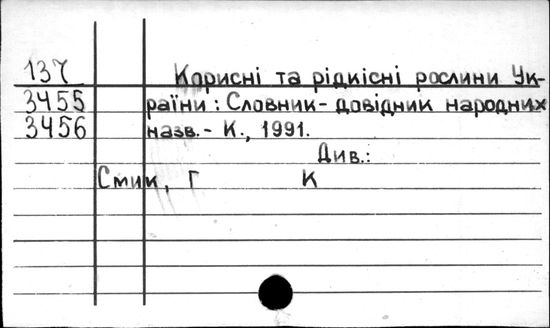 137 Корисні та рідкісні рослини Ук-
3455 раїни : Словник-довідник народних
3456 назв.- К., 1991.
Див.:
Смик, Г К